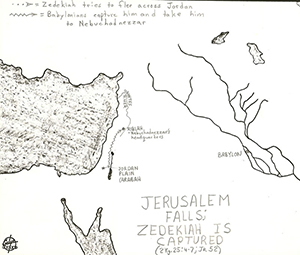 = Zedekiah tries to flee across Jordan
= Babylonians capture him and take him
to Nebuchadnezzar
RIBLAH
Nebuchadnezzar's
headquarters
BABYLON
JORDAN
PLAIN
(ARABAH)
JERUSALEM
FALLS;
ZEDEKIAH IS
CAPTURED
(2 Kg. 25:4-7; Jr. 52)